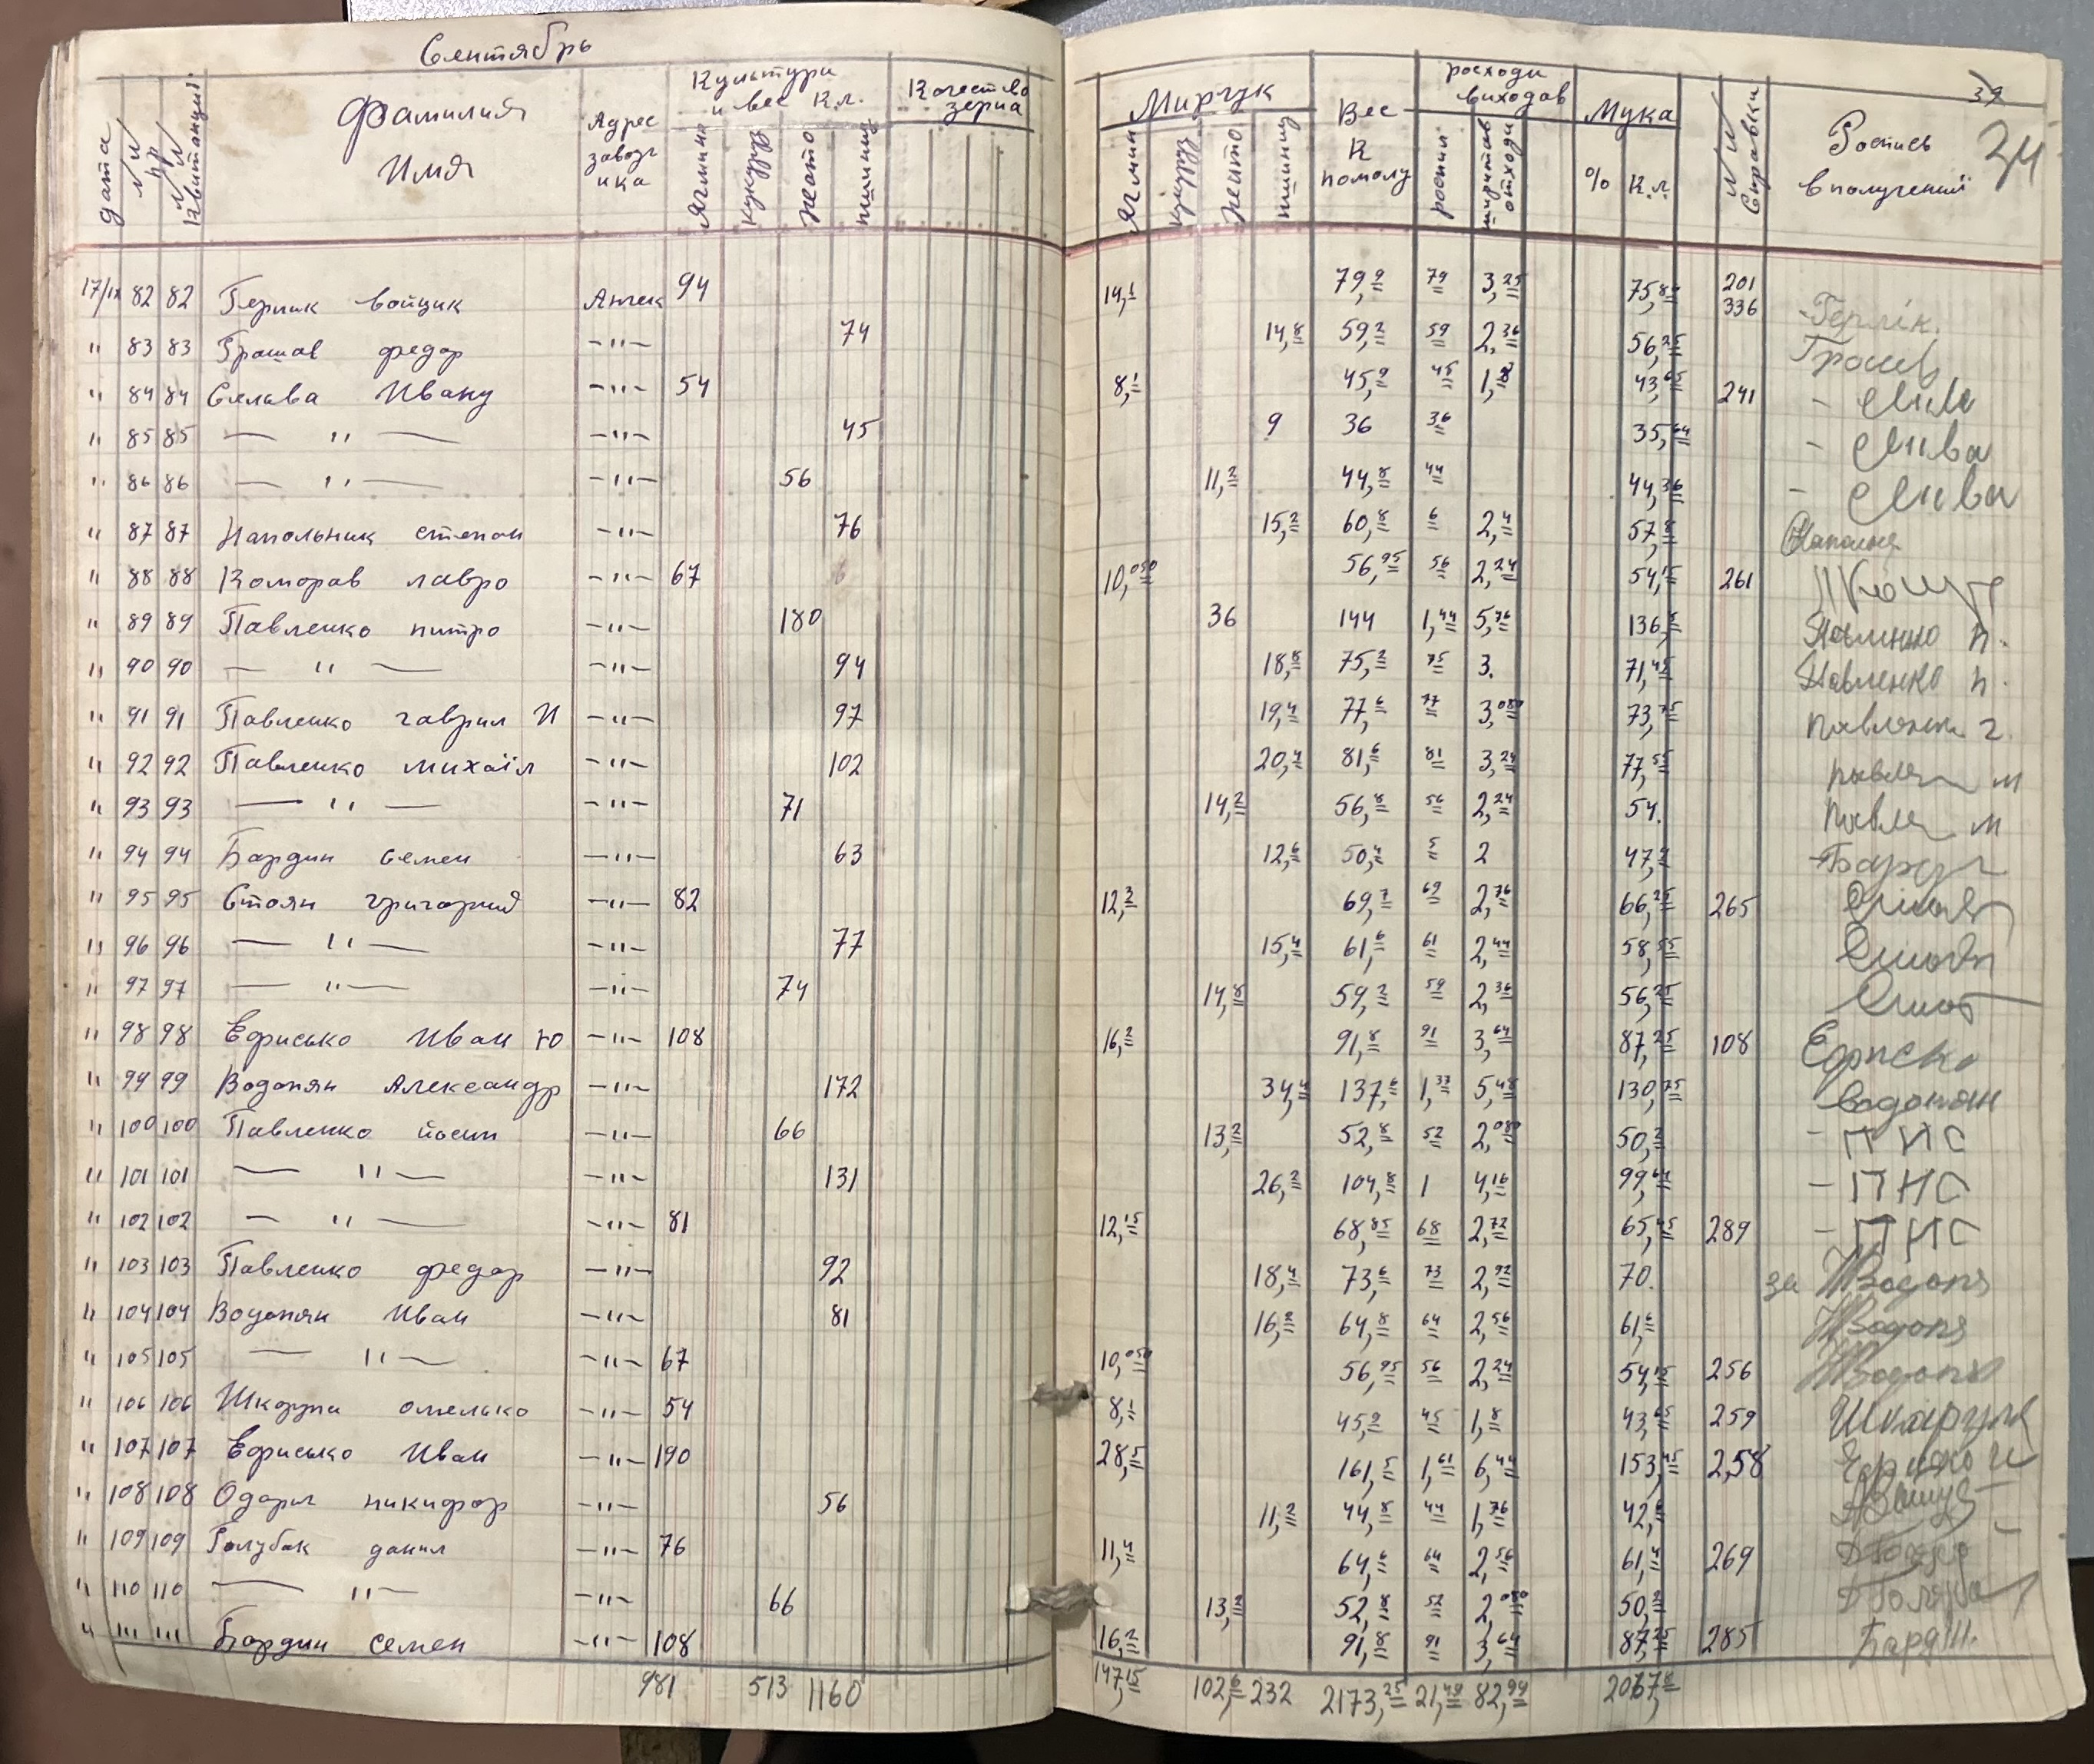 Сентябрь
дата
№ № пр
№ № Квитанциї
Фамилия Имя
Адрес заводч ика
Культури и вес Кл.
Ячмин
кукуруз
нетто
пшениц
Качество зерна
Мирчук
Ячмин
кукуруз
нетто
пшениц
Вес К помолу
росходи виходав
роспил
отходи
Мука
% К.л.
№ № Справки
Роспись в получениї
39
34
17/IX 82 82 Герлик войцик Анчек 94 14,1 79,9 79 3,25 75,84 201 336 Герлік.
" 83 83 Грошов федор -"- 74 14,8 59,2 59 2,36 56,25 Грошев
" 84 84 Сельва Ивану -"- 54 8,1 45,9 45 1,8 43,65 241
" 85 85 — " — -"- 45 9 36 36 35,64
" 86 86 — " — -"- 56 11,2 44,8 44 44,36
" 87 87 Напольник степан -"- 76 15,2 60,8 6 2,4 57,8
" 88 88 Коморав лавро -"- 67 10,050 56,95 56 2,24 54,15 261
" 89 89 Павленко питро -"- 180 36 144 1,44 5,76 136,8 Павленко П.
" 90 90 — " — -"- 94 18,8 75,2 75 3. 71,45 Павленко П.
" 91 91 Павленко гаврил И -"- 97 19,4 77,6 77 3,080 73,75 Павленк Г.
" 92 92 Павленко михаїл -"- 102 20,4 81,6 81 3,24 77,55 Павлен м
" 93 93 — " — -"- 71 14,2 56,8 56 2,24 54. Павле м
" 94 94 Бардин семен -"- 63 12,6 50,4 5 2 47,9
" 95 95 Стоян григорий -"- 82 12,3 69,7 69 2,76 66,25 265
" 96 96 — " — -"- 77 15,4 61,6 61 2,44 58,55
" 97 97 — " — -"- 74 14,8 59,2 59 2,36 56,25
" 98 98 Едрисько Иван Ю -"- 108 16,2 91,8 91 3,64 87,25 108 Едриско
" 99 99 Водопян Александр -"- 172 34,4 137,6 1,37 5,48 130,75 Водопян
" 100 100 Павленко йосип -"- 66 13,2 52,8 52 2,080 50,2 - ПИС
" 101 101 — " — -"- 131 26,2 104,8 1 4,16 99,64 - ПИС
" 102 102 — " — -"- 81 12,15 68,85 68 2,72 65,45 289 - ПИС
" 103 103 Павленко федар -"- 92 18,4 73,6 73 2,92 70. за Водопя
" 104 104 Водопян Иван -"- 81 16,2 64,8 64 2,56 61,6 Водопя
" 105 105 — " — -"- 67 10,050 56,95 56 2,24 54,15 256 Водопя
" 106 106 Шкорупи омелько -"- 54 8,1 45,9 45 1,8 43,65 259
" 107 107 Едрисько Иван -"- 190 28,5 161,5 1,61 6,44 153,45 2,58
" 108 108 Одари никифор -"- 56 11,2 44,8 44 1,76 42,6
" 109 109 Голубак данил -"- 76 11,4 64,6 64 2,56 61,4 269
" 110 110 — " — -"- 66 13,2 52,8 52 2,080 50,2
" 111 111 Бардин семен -"- 108 16,2 91,8 91 3,64 87,25 285
981 513 1160 147,15 102,6 232 2173,25 21,49 82,94 2067,8